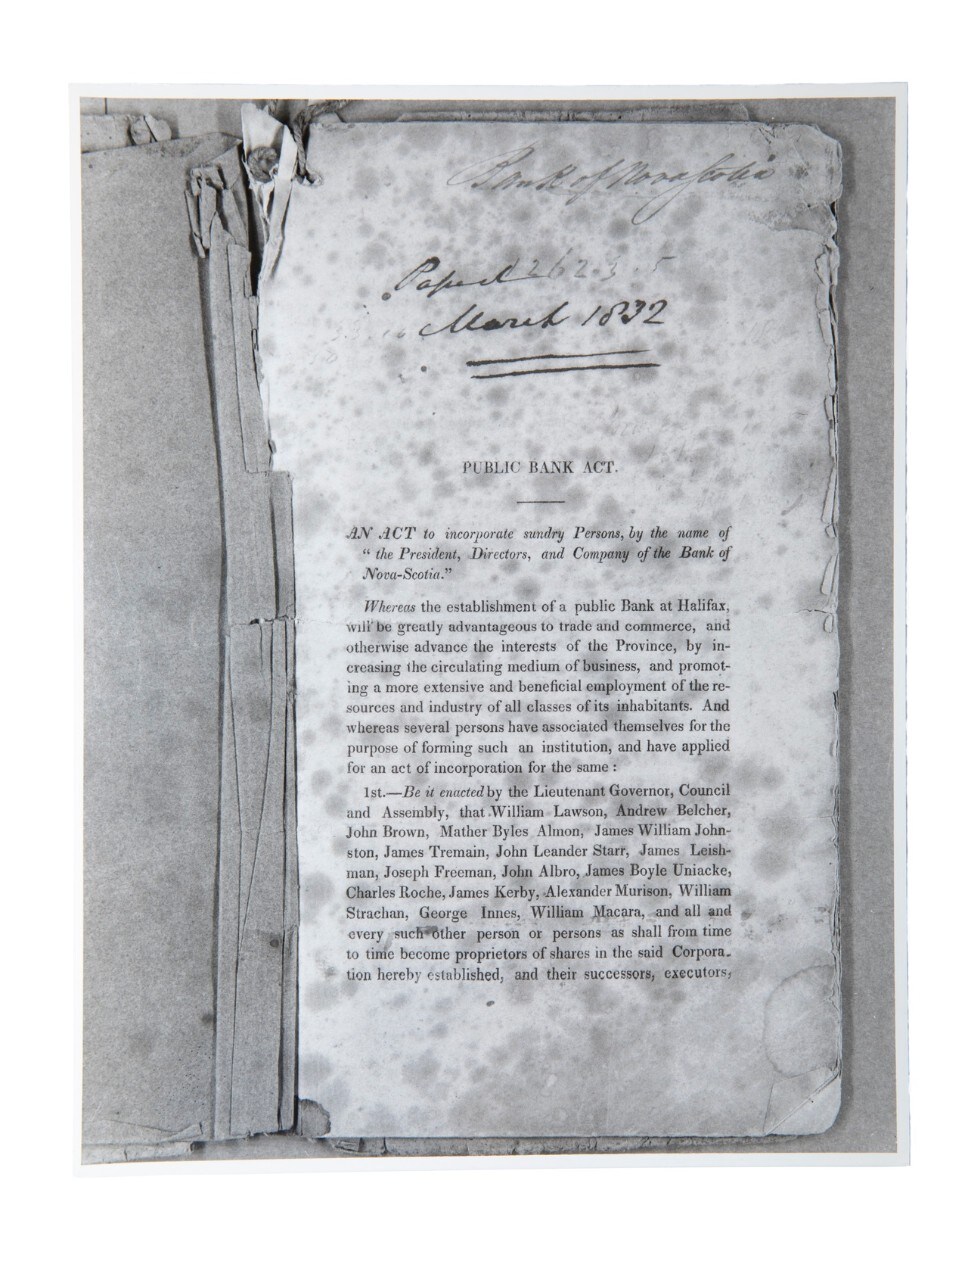 Bank of Nova Scotia
Paped
March 1832
PUBLIC BANK ACT.
AN ACT to incorporate sundry Persons, by the name of
“ the President, Directors, and Company of the Bank of
Nova-Scotia.”
Whereas the establishment of a public Bank at Halifax,
will be greatly advantageous to trade and commerce, and
otherwise advance the interests of the Province, by in-
creasing the circulating medium of business, and promot-
ing a more extensive and beneficial employment of the re-
sources and industry of all classes of its inhabitants. And
whereas several persons have associated themselves for the
purpose of forming such an institution, and have applied
for an act of incorporation for the same :
1st.—Be it enacted by the Lieutenant Governor, Council
and Assembly, that William Lawson, Andrew Belcher,
John Brown, Mather Byles Almon, James William John-
ston, James Tremain, John Leander Starr, James Leish-
man, Joseph Freeman, John Albro, James Boyle Uniacke,
Charles Roche, James Kerby, Alexander Murison, William
Strachan, George Innes, William Macara, and all and
every such other person or persons as shall from time
to time become proprietors of shares in the said Corpora-
tion hereby established, and their successors, executors,